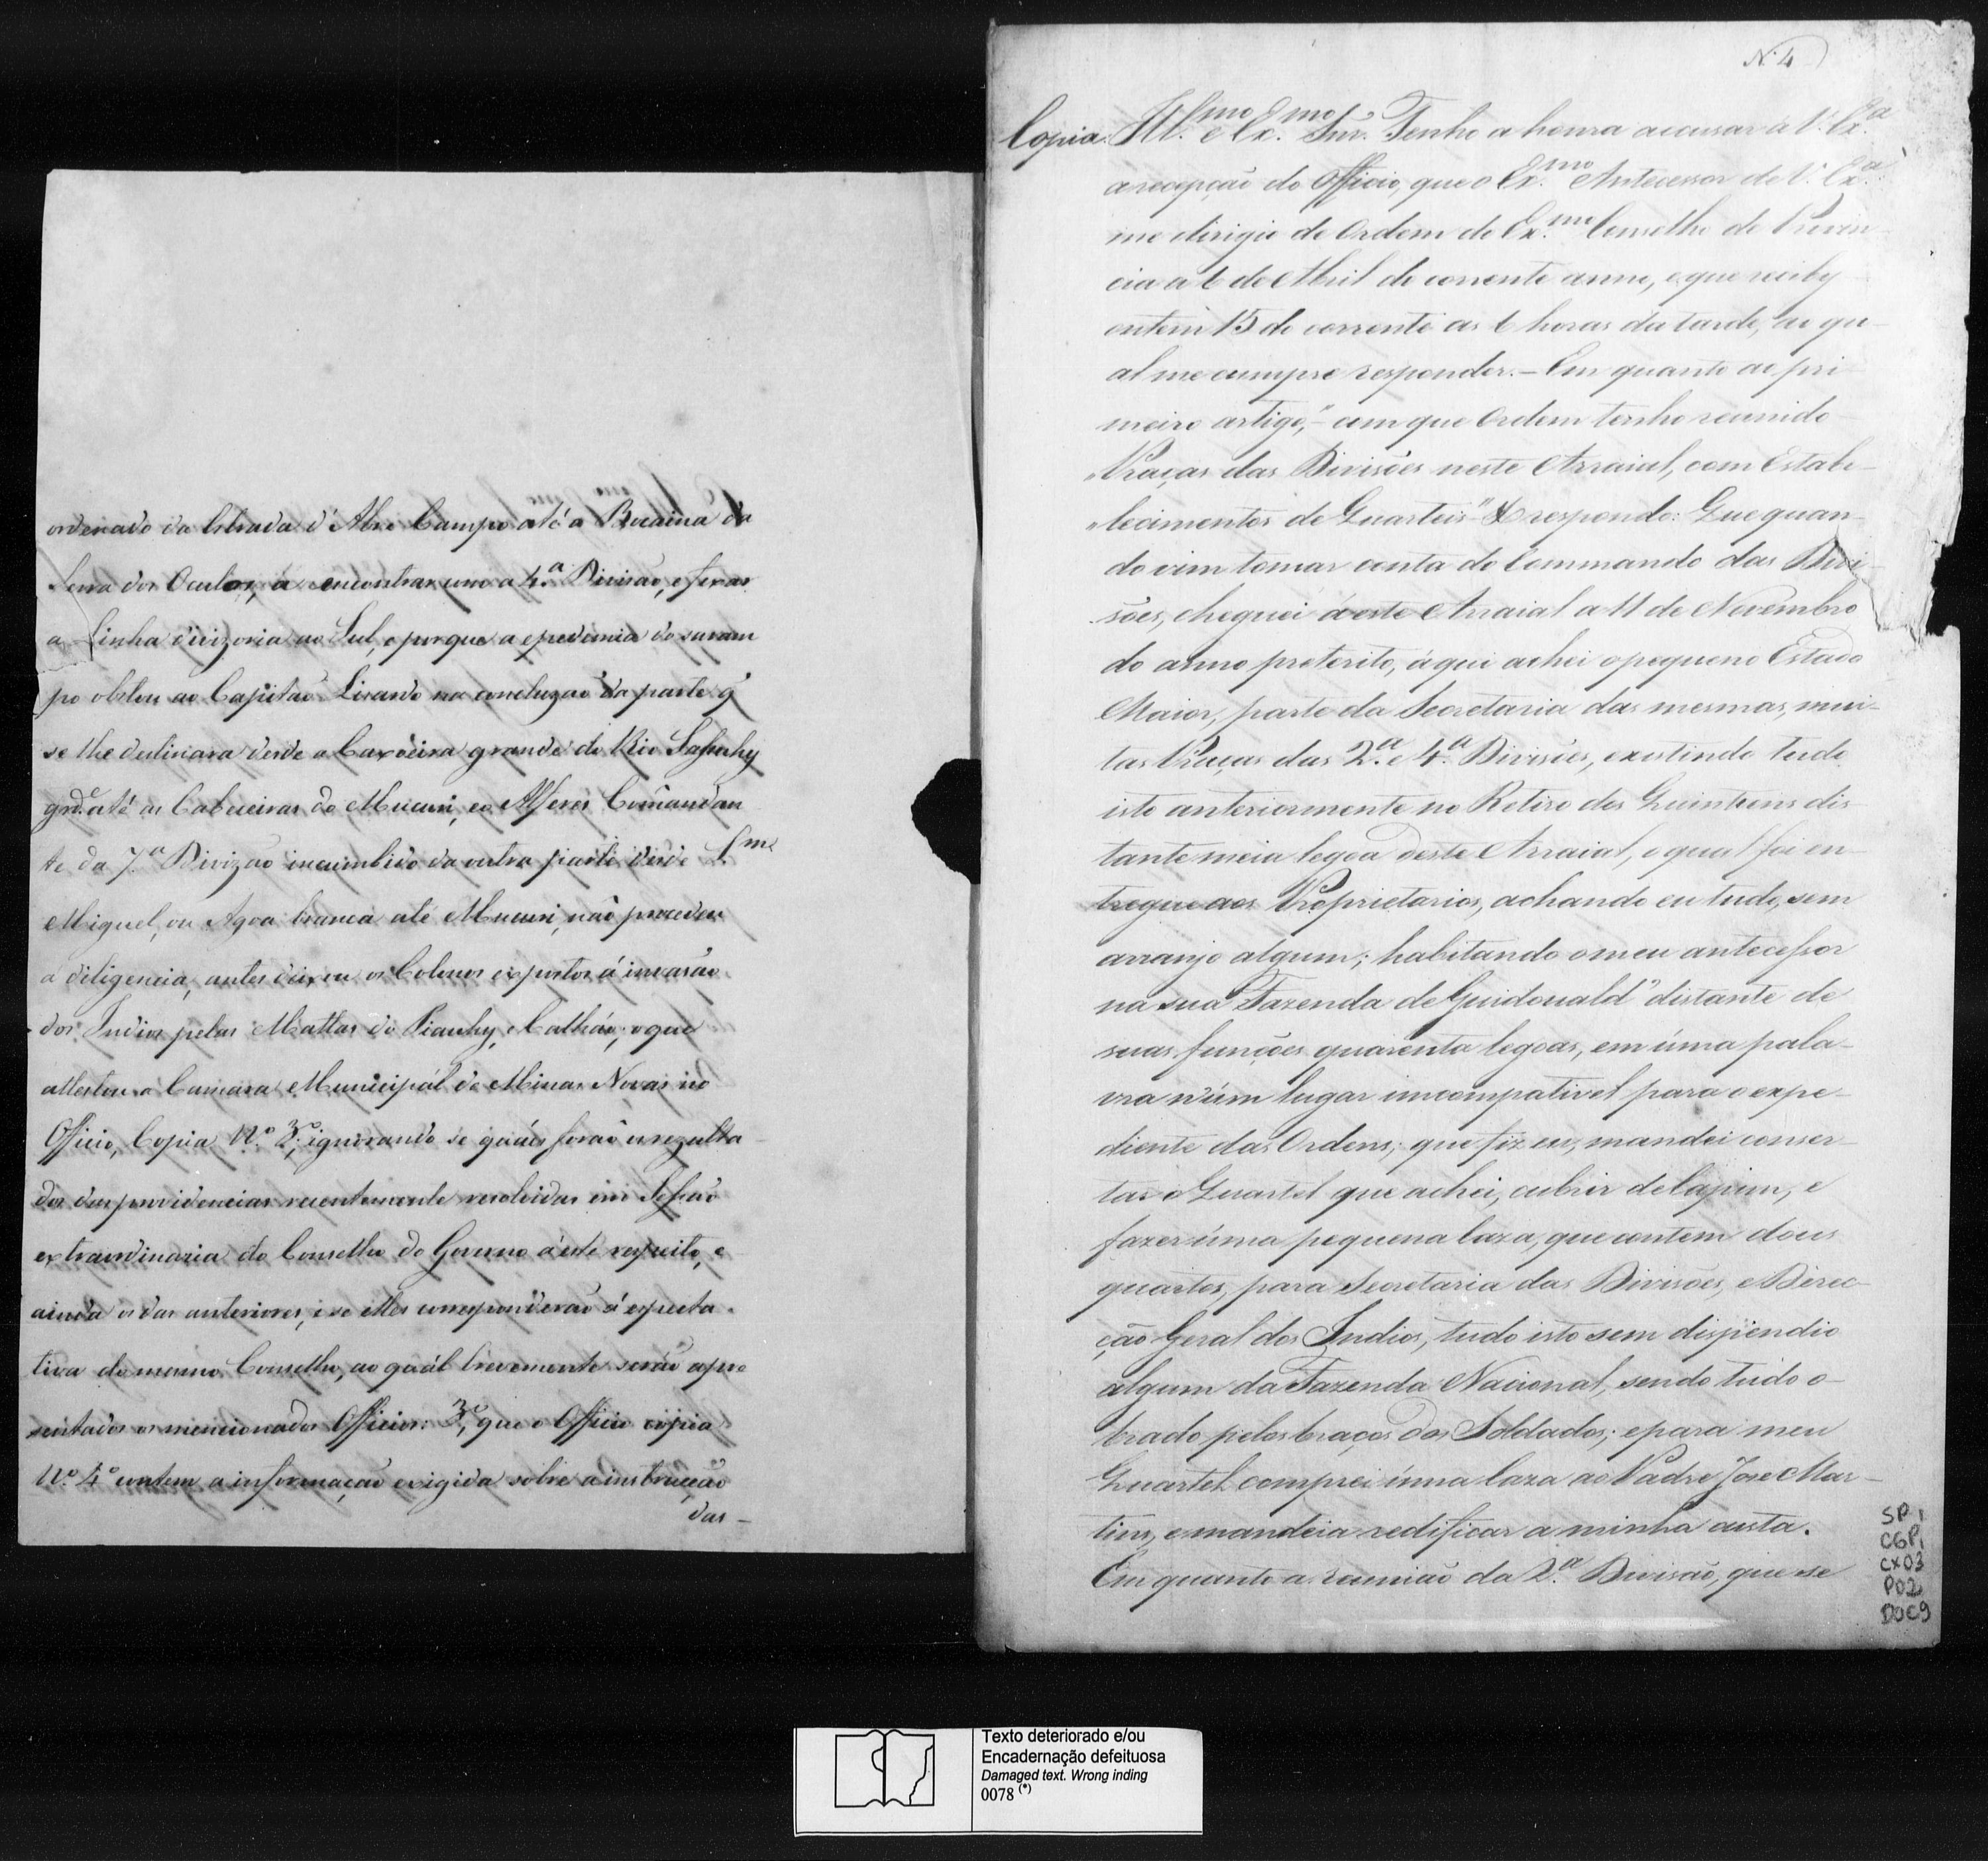 ordenado da Estrada d'Abre Campo até a Bocaina da
Serra dos Oculos, a encontrar como a 4.ª Divisão, e feixar
a Linha divizoria ao Sul, e porque a epedemia do saram
po obstou ao Capitaõ Lizardo na concluzaõ da parte q̃
se lhe destinara desde a Caxoeira grande do Rio Safuchy
grd.e até as Cabiceiras do Mucuri, e o Alferes Comandan
te da 7.ª Divizaõ incumbido da outra parte desde S. M.el
Miguel, ou Agoa branca até Mucuri, naõ procedeu
a diligencia, antes deixou os Colonos expostos á invasaõ
dos Indios pelas Mattas do Piauhy, e Calháo; o que
attestou a Camara Municipál de Minas Novas no
Officio, Copia N.º 3.º, ignorando se quáes foraõ os rezulta
dos das providencias recentemente resolvidas em Sessaõ
extraordinaria do Conselho do Governo á este respeito, e
ainda os das anteriores, e se elles corresponderaõ á especta
tiva do mesmo Conselho, ao quál brevemente seraõ apre
sentados os mencionados Officios: 3.º, que o Officio cópia
N.º 4.º contem a informaçaõ exigida sobre a instrucçaõ
das -
N. 4
Copia. Ill.mo e Ex.mo Snr. Tenho a honra accusar a V. Ex.ª
a recepçaõ do Officio, que o Ex.mo Antecessor de V. Ex.ª
me dirigio de Ordem do Ex.mo Conselho de Provin
cia a 6 de Abril do corrente anno, e que reciby
ontem 15 do corrente as 6 horas da tarde, ao qu
al me cumpre responder. - Em quanto ao pri
meiro artigo, "com que Ordem tenho reunido
"Praças das Divisões neste Arraial, com Estabe
"lecimentos de Quarteis" &c respondo: Que quan
do vim tomar conta do Commando das Divi
sões, cheguei á este Arraial a 11 de Novembro
do anno preterito, áqui achei o pequeno Estado
Maior, parte da Secretaria das mesmas, mui-
tas Praças das 2.ª e 4.ª Divisões, existindo tudo
isto anteriormente no Retiro dos Quinteens dis
tante meia legoa deste Arraial, o qual foi en
tregue aos Proprietarios, achando eu tudo, sem
arranjo algum; habitando o meu antecessor
na sua Fazenda de Guidonald" distante de
suas funções quarenta legoas, em úma pala-
vra n'úm lugar imcompativel para o expe-
diente das Ordens; que fiz eu, mandei conser-
tar o Quartel que achei, cubrir de Capim, e
fazer úma pequena Caza, que contem dous
quartos, para Secretaria das Divisões, e Direc-
çaõ Geral dos Indios, tudo isto sem dispendio
algum da Fazenda Nacional, sendo tudo o-
brado pelos braços dos Soldados; e para meu
Quartel comprei úma Caza ao Padre Jose Mar-
tins, e mandeia redificar a minha custa.
Em quanto a reuniaõ da 2.ª Divisaõ, que se
SP 1
CGP1
CX03
P02
DOC9
Texto deteriorado e/ou
Encadernação defeituosa
Damaged text. Wrong inding
0078 (*)